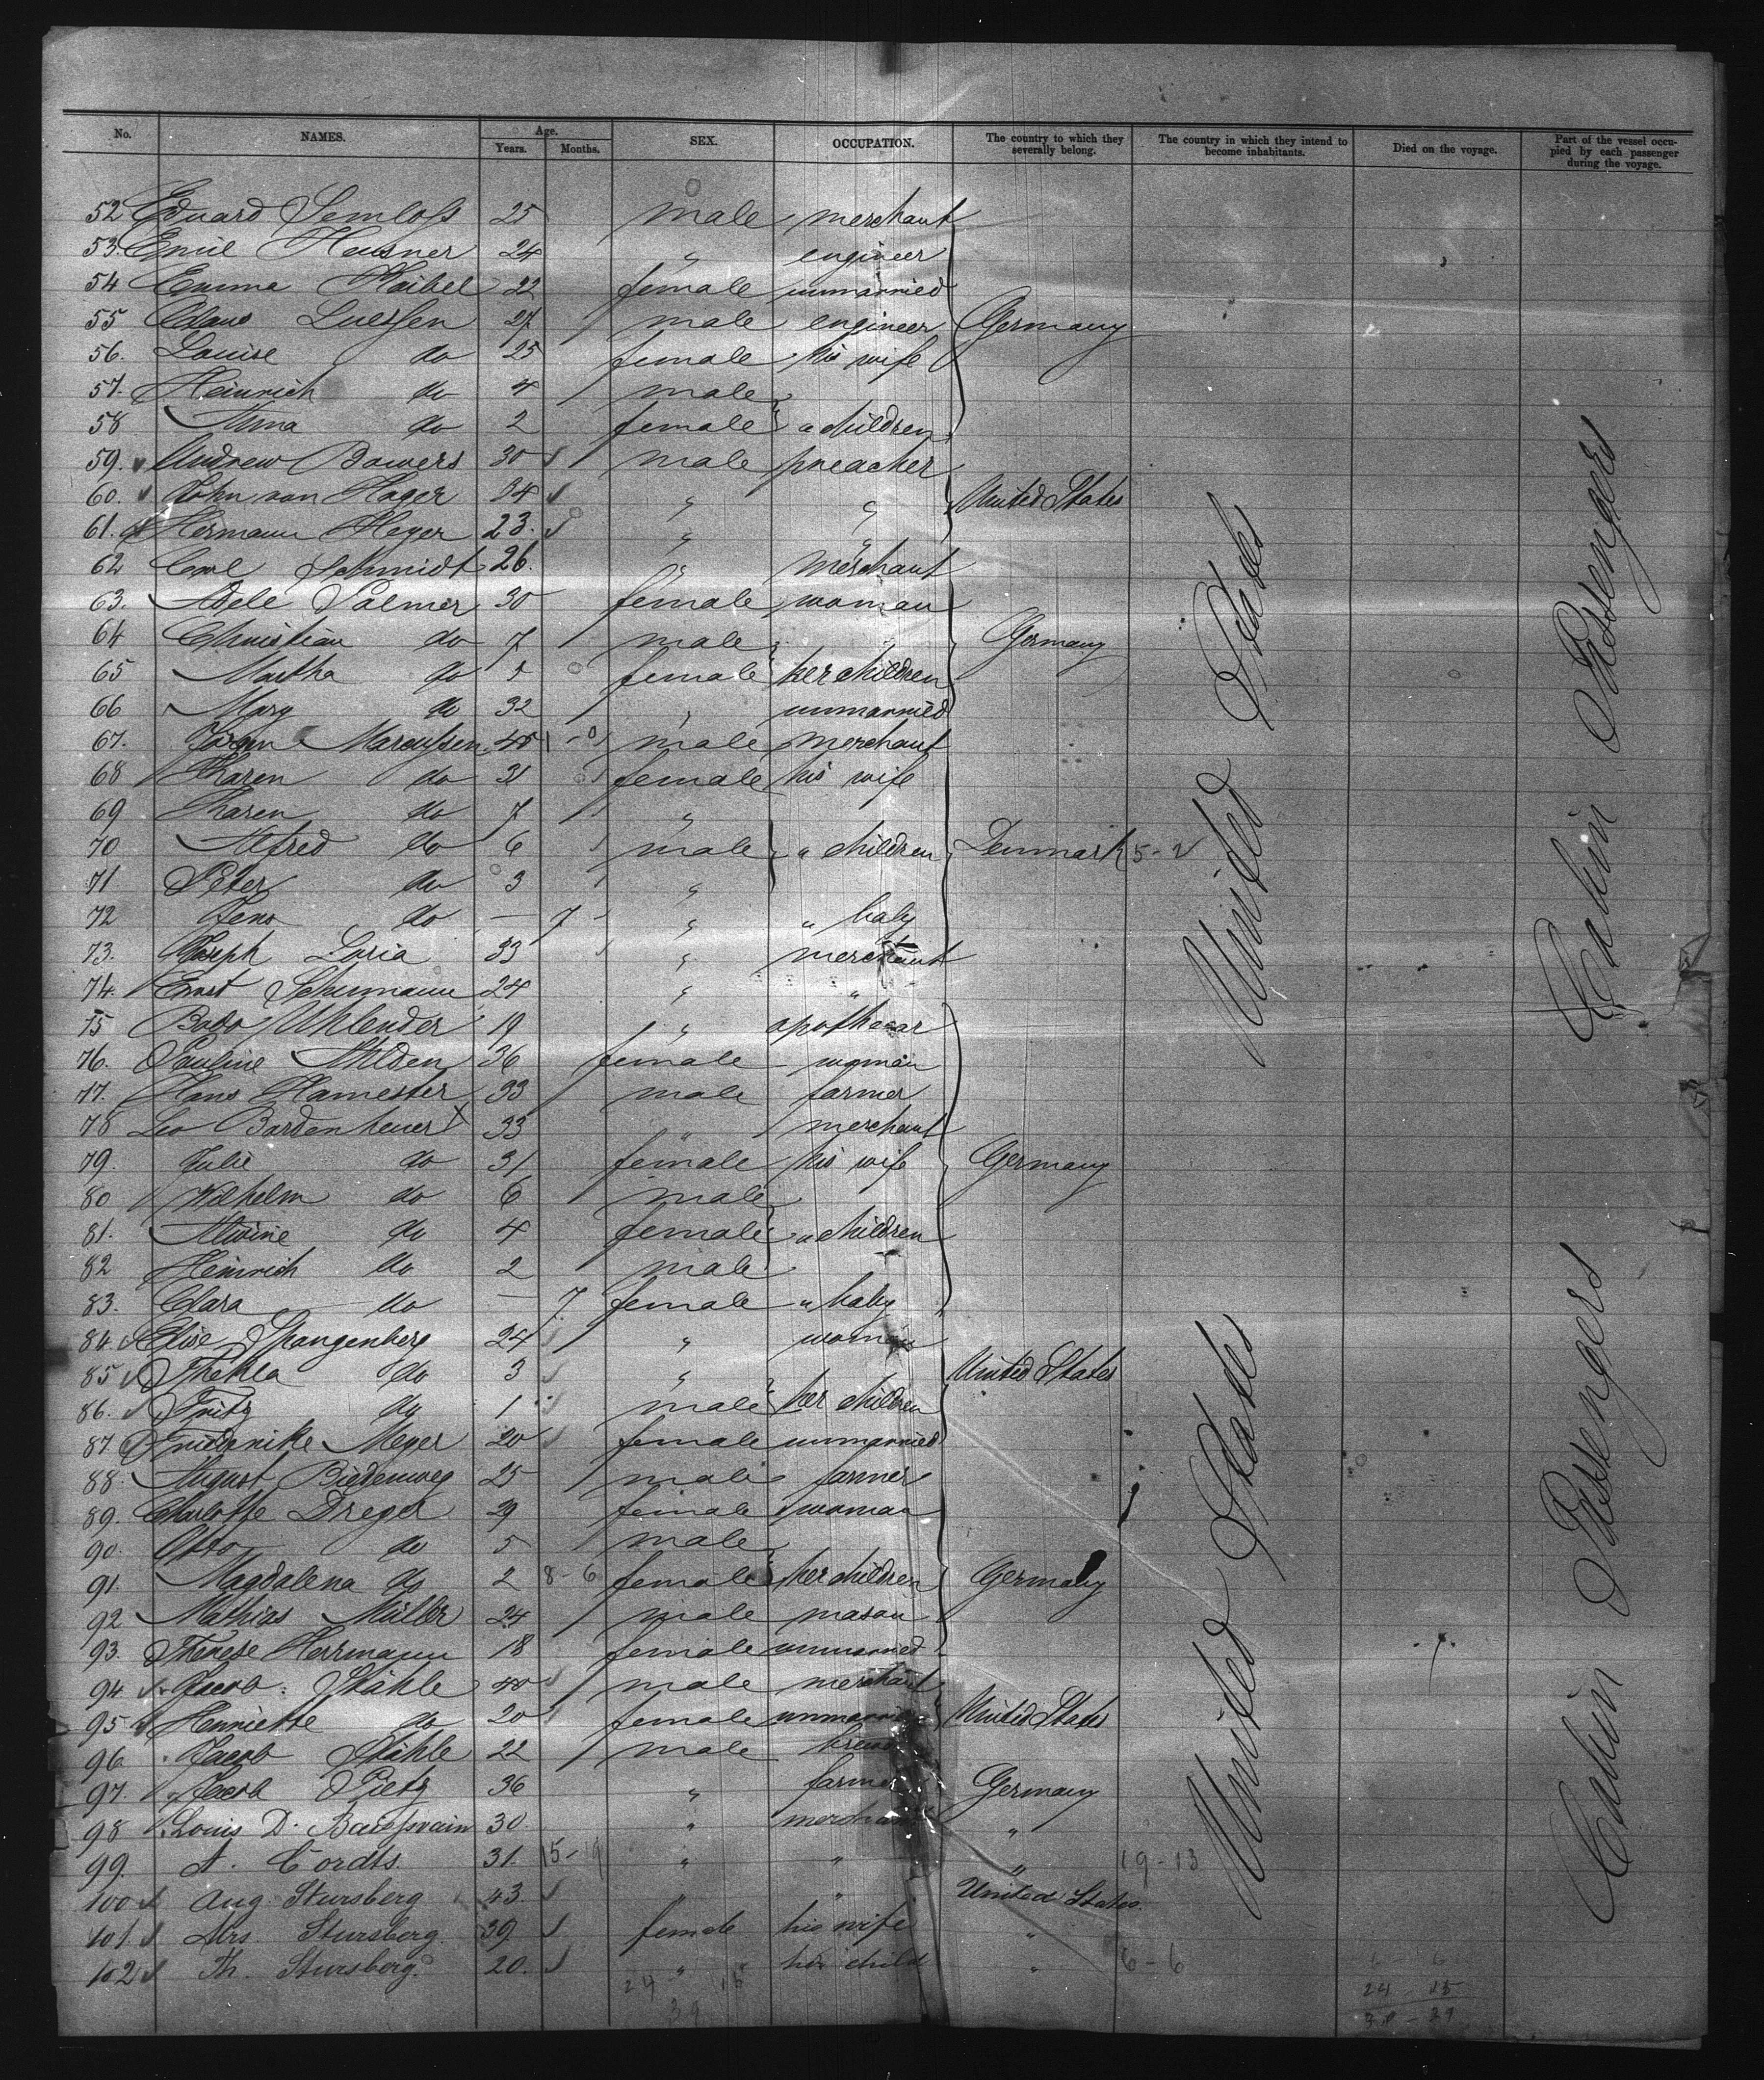 No. NAMES. Age. Years. Months. SEX. OCCUPATION. The country to which they severally belong. The country in which they intend to become inhabitants. Died on the voyage. Part of the vessel occupied by each passenger during the voyage.
52 Eduard 25 male merchant
53. Emil Hausner 24 " engineer
54 Emma Haibel 22 female unmarried
55 Claus Luerssen 27 male engineer Germany
56. Louise do 25 female his wife
57. Heinrich do 4 male
58 Anna do 2 female " children
59. Andrew Bowers 30 male preacher
60. John van Hager 34 " " United States
61. Hermann Heger 23. " "
62 Carl Schmidt 26. " merchant
63. Adele Palmer 30 female woman
64 Christian do 7 male Germany
65 Martha do 5 female her children
66 Mary do 32 " unmarried
67. Jörgen Marcussen 45 male merchant
68 Karen do 31 female his wife
69 Karen do 7 "
70 Alfred do 6 male " children Denmark 5-2
71 Peter do 3 "
72 Jens do — 7 " " baby
73. Joseph Loria 33 " merchant
74. Ernst Schumann 24 " "
75 Bodo Uhlender 19 " apothecar
76. Pauline Ahlden 36 female woman
77. Hans Hamester 33 male farmer
78 Leo Bardenheuer X 33 " merchant
79. Julie do 31 female his wife Germany
80 Wilhelm do 6 male
81. Alwine do 4 female " children
82 Heinrich do 2 male
83. Clara do — 7 female " baby
84. Elise Spangenberg 24 " woman
85 Thekla do 3 " United States
86. Fritz do 1 male her children
87. Friederike Meyer 20 female unmarried
88. August Biedenweg 25 male farmer
89. Charlotte Dreger 29 female woman
90. Otto do 5 male
91. Magdalena do 2 8-6 female her children Germany
92 Mathias Müller 24 male mason
93. Therese Herrmann 18 female unmarried
94 Jacob Stähle 40 male merchant
95 Henriette do 20 female unmarried United States
96 Jacob Stähle 22 male
97. Jacob Pietz 36 " farmer Germany
98 Louis D. 30. " merchant "
99. A. Cordts. 31. 15-19 " " " 19-13
100 Aug. Stursberg 43. " " United States.
101. Mrs. Stursberg. 39. female his wife "
102 Th. Stursberg. 20. " his child " 6-6
24 15
39
24 15
United States
United States
Cabin Passengers
Cabin Passengers